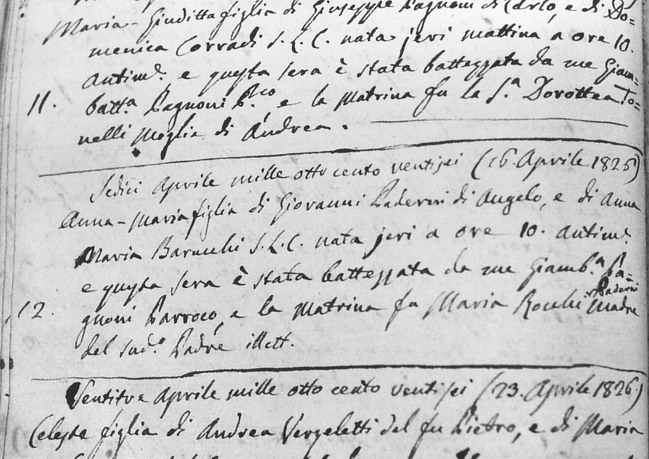 Maria-Giuditta figlia di Giuseppe Pagnoni di Carlo, e di Do=
menica Corradi S. L. C. nata jeri mattina a ore 10.
antimd. e questa sera è stata battezzata da me Giam=
11. batta. Pagnoni P.co e la Matrina fu la S.a Dorottea To=
nelli Moglie di Andrea.
Sedici Aprile mille otto cento ventisei (16. Aprile 1826)
Anna-Maria figlia di Giovanni Paderni di Angelo, e di Anna
Maria Barucchi S. L. C. nata jeri a ore 10. antimd.
e questa sera è stata battezzata da me Giamb.a Pa=
12. gnoni Parroco, e la Matrina fu Maria Rocchi Paderni Madre
del sud.o Padre illett.
Ventitre Aprile mille otto cento ventisei (23. Aprile 1826)
Celeste figlia di Andrea Vergeletti del fu Pietro, e di Maria